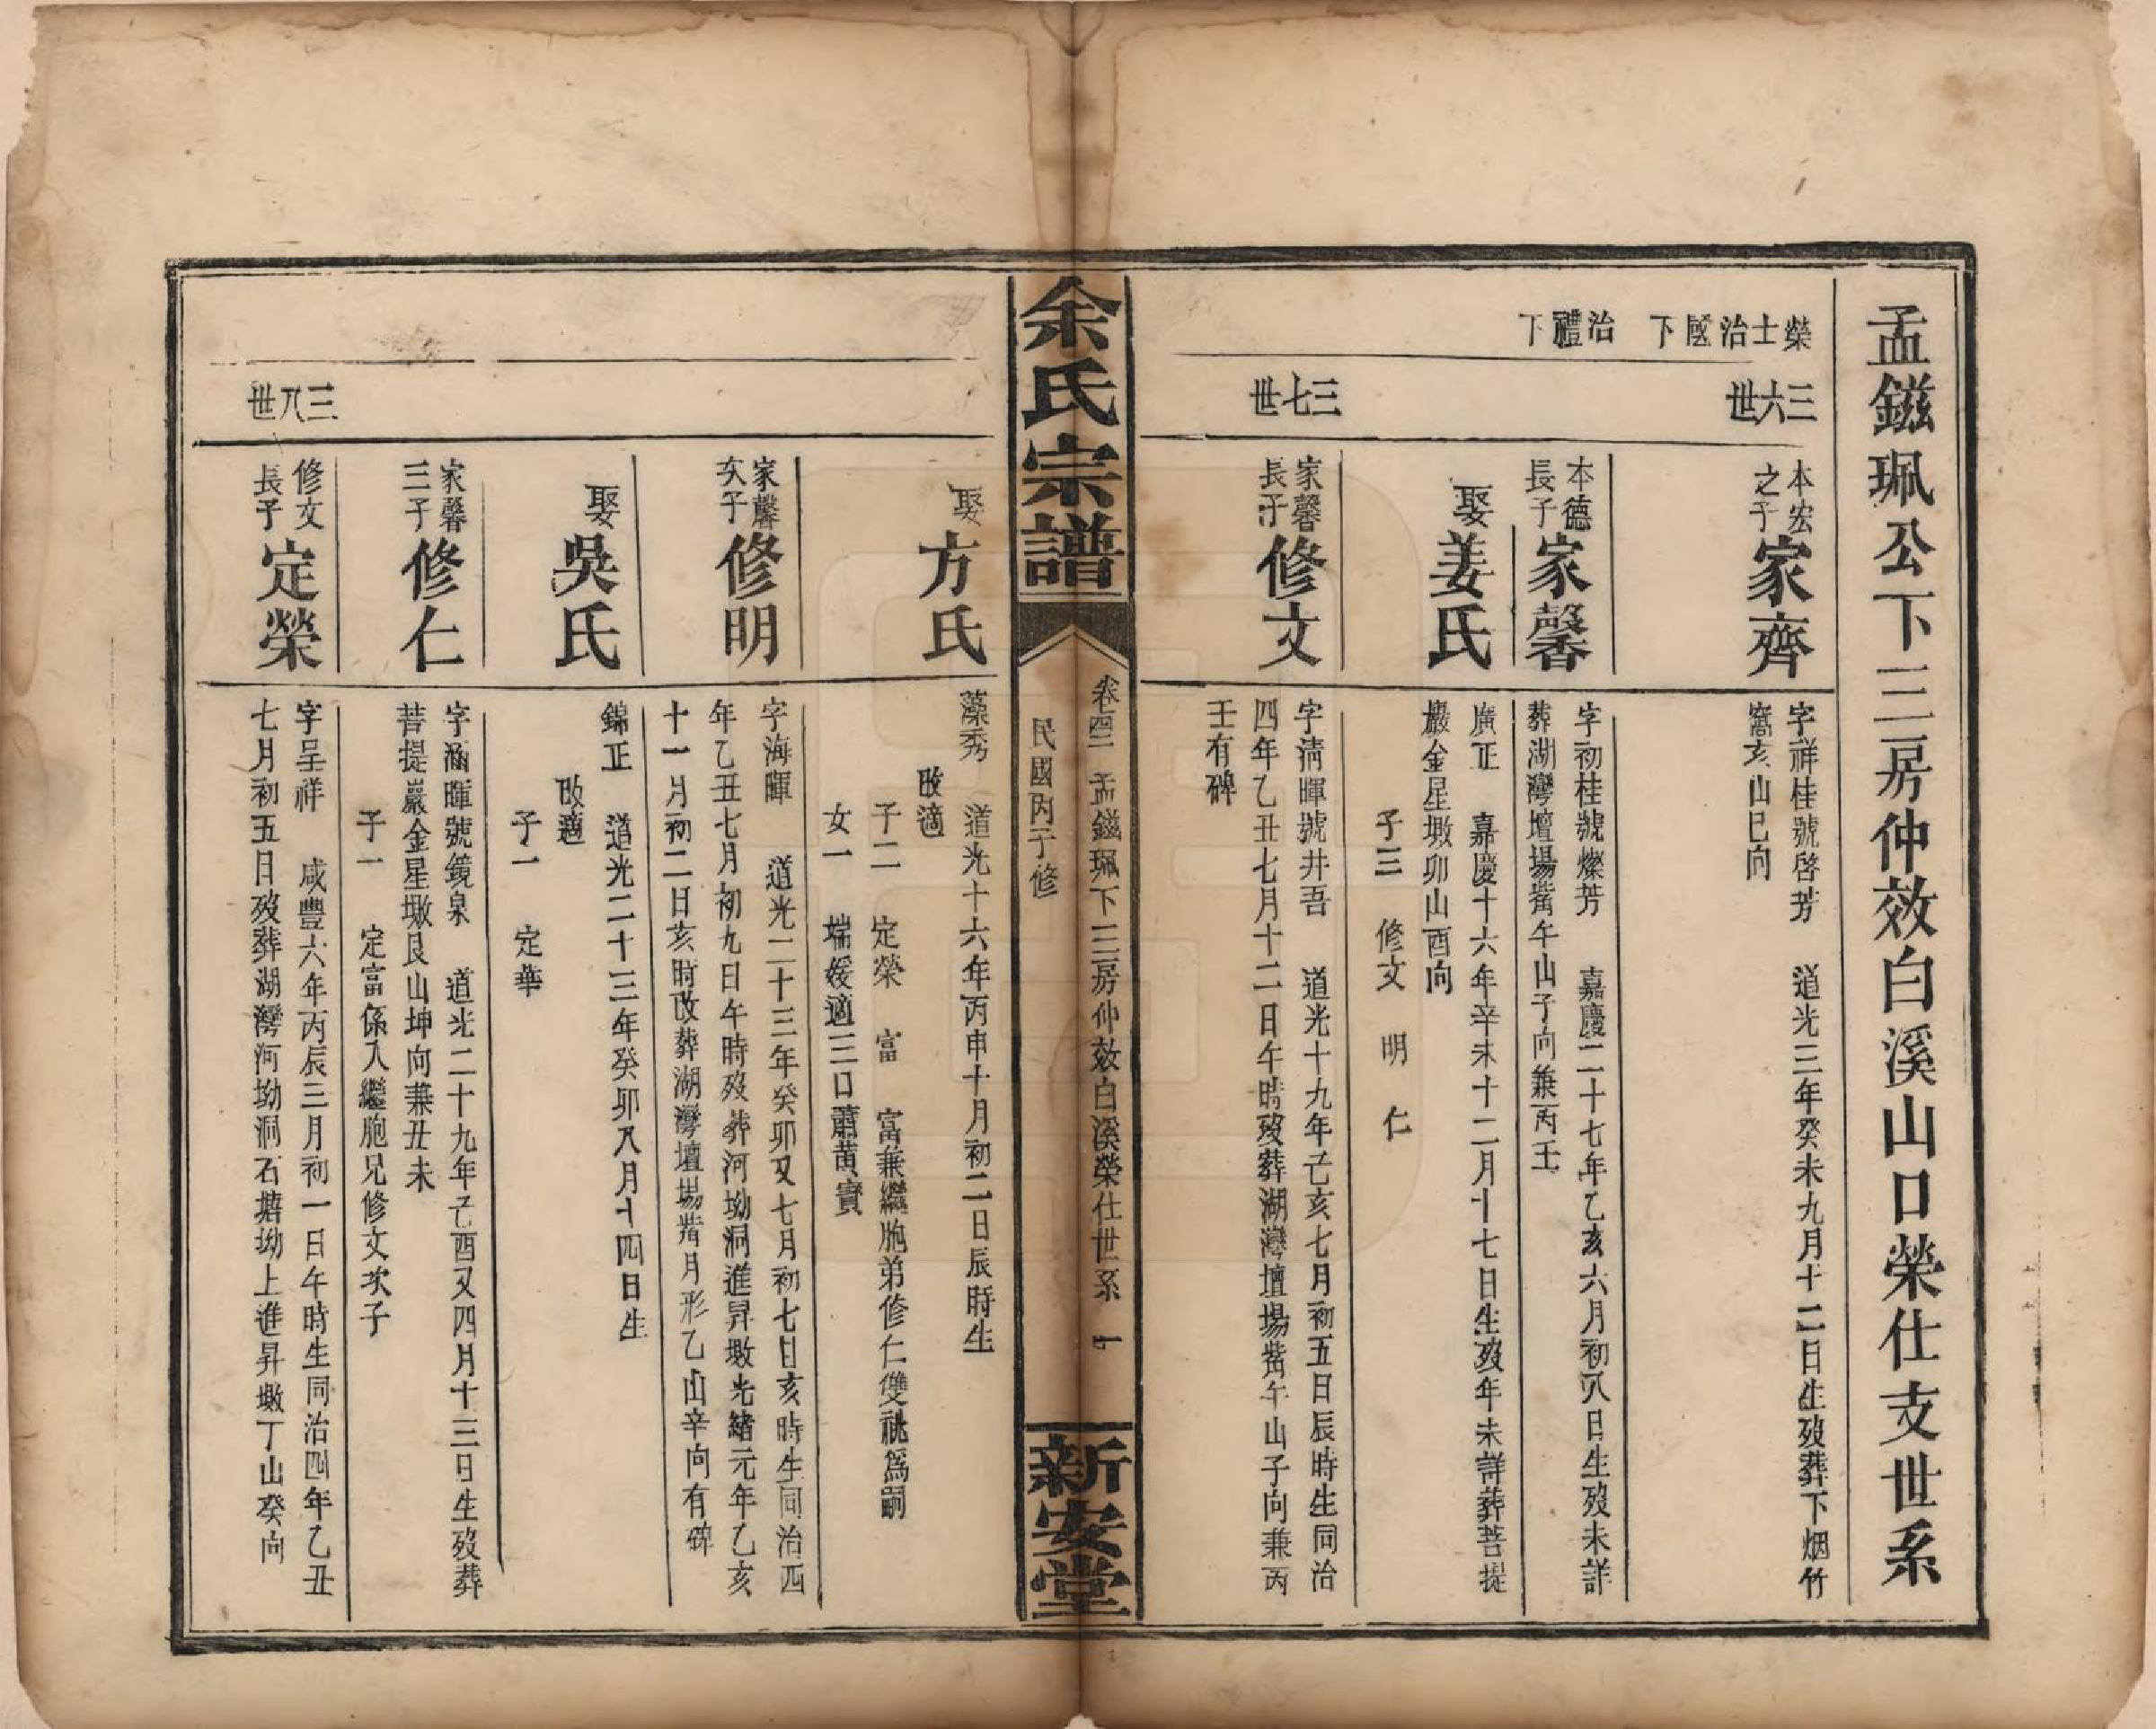 孟鎡珮公下三房仲效白溪山口榮仕支世系
榮士治國下
治禮下
三六世
本宏之子
家齊
字祥桂號啓芳　道光三年癸未九月十二日生歿葬下烟竹
窩亥山巳向
本德長子
家馨
字初桂號燦芳　嘉慶二十七年乙亥六月初八日生歿未詳
葬湖灣壇場嘴午山子向兼丙壬
娶
姜氏
廣正　嘉慶十六年辛未十二月十七日生歿年未詳葬菩提
巖金星墩卯山酉向
子三　修文　明　仁
三七世
家馨長子
修文
字淸暉號井吾　道光十九年己亥七月初五日辰時生同治
四年乙丑七月十二日午時歿葬湖灣壇場嘴午山子向兼丙
壬有碑
余氏宗譜
卷四一　孟鎡珮下三房仲效白溪榮仕世系　十
民國丙子修
新安堂
娶
方氏
藻秀　道光十六年丙申十月初二日辰時生
改適
子二　定榮　富　富兼繼胞弟修仁雙祧爲嗣
女一　端媛適三口蕭黄實
家馨次子
修明
字海暉　道光二十三年癸卯又七月初七日亥時生同治四
年乙丑七月初九日午時歿葬河坳洞進昇墩光緒元年乙亥
十一月初二日亥時改葬湖灣壇場嘴月形乙山辛向有碑
娶
吳氏
錦正　道光二十三年癸卯八月十四日生
改適
子一　定華
家馨三子
修仁
字涵暉號鏡泉　道光二十九年己酉又四月十三日生歿葬
菩提巖金星墩艮山坤向兼丑未
子一　定富係入繼胞兄修文次子
三八世
修文長子
定榮
字呈祥　咸豐六年丙辰三月初一日午時生同治四年乙丑
七月初五日歿葬湖灣河坳洞石塘坳上進昇墩丁山癸向